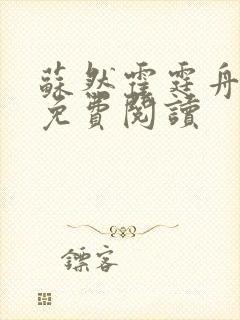 蘇然霍霆舟
免費閱讀
鏢客